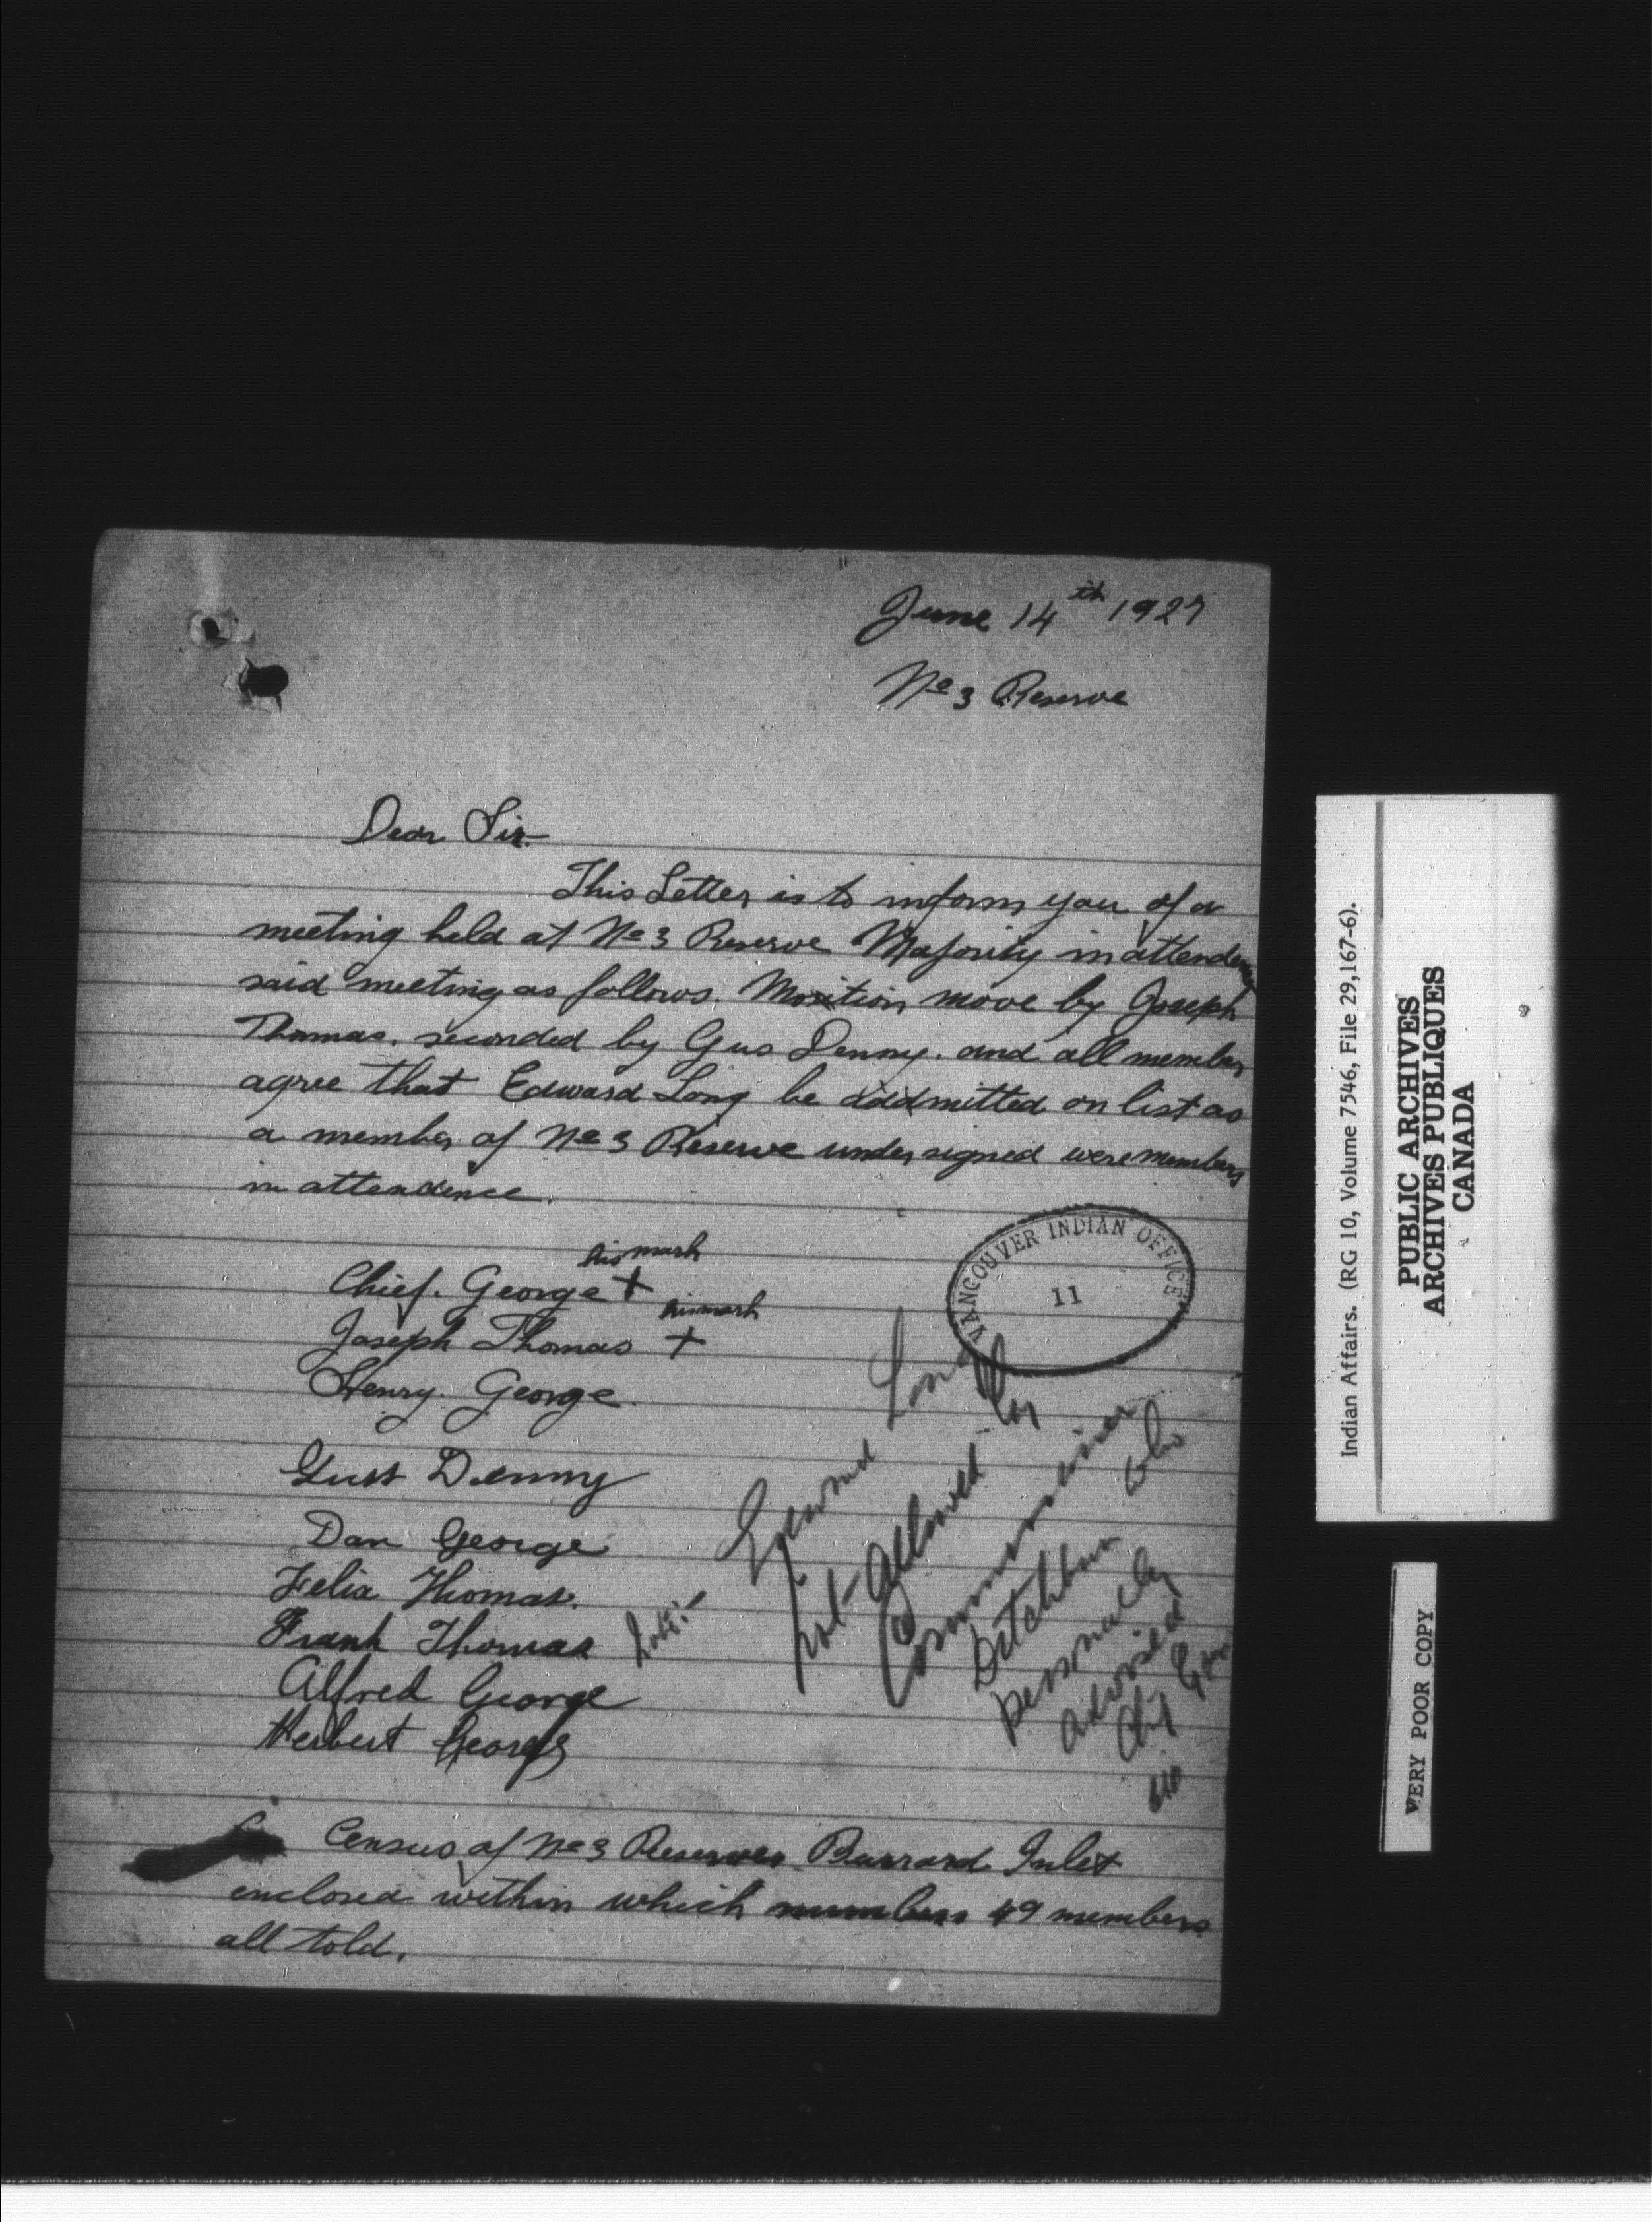 June 14th 1927
No 3 Reserve
Dear Sir.
This Letter is to inform you of a
meeting held at No 3 Reserve Majority in attendence
said meeting as follows. Motion move by Joseph
Thomas. seconded by Gus Denny. and all member
agree that Edward Long be addmitted on list as
a member of No 3 Reserve undersigned were members
in attendence.
his mark
Chief. George +
his mark
Joseph Thomas +
Henry. George.
Gust Denny
Dan George
Felix Thomas.
Frank Thomas
Alfred George
Herbert George
Census of No 3 Reserves Burrard Inlet
enclosed within which numbers 49 members
all told.
VANCOUVER INDIAN OFFICE
11
Note:-
Edward Long
not allowed by
Commissioner
Ditchburn who
personally
advised
Chf Geo
Indian Affairs. (RG 10, Volume 7546, File 29,167-6).
PUBLIC ARCHIVES
ARCHIVES PUBLIQUES
CANADA
VERY POOR COPY